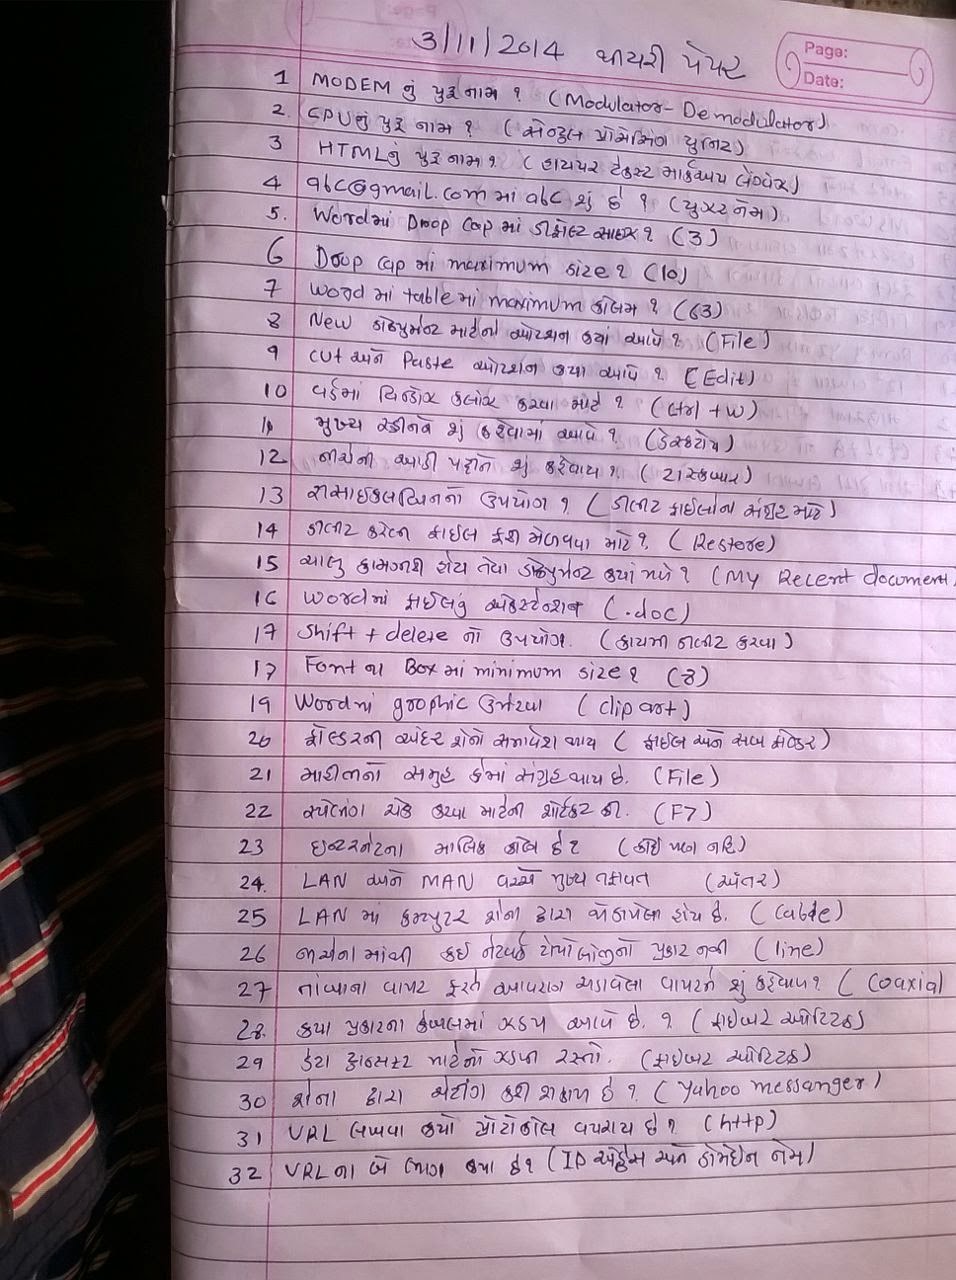 3/11/2014 થીયરી પેપર
Page:
Date:
1 MODEM નું પુરૂ નામ ? (Modulator-Demodulator)
2. CPU નું પુરૂ નામ ? (સેન્ટ્રલ પ્રોસેસિંગ યુનિટ)
3 HTML નું પુરૂ નામ ? (હાયપર ટેક્સ્ટ માર્કઅપ લેંગ્વેજ)
4 abc@gmail.com માં abc શું છે ? (યુઝર નેમ)
5. Word માં Drop Cap માં ડીફોલ્ટ સાઇઝ ? (3)
6 Drop Cap માં maximum size ? (10)
7 Word માં table માં maximum કોલમ ? (63)
8 New ડોક્યુમેન્ટ માટેનો ઓપ્શન કયાં આવે ? (File)
9 cut અને Paste ઓપ્શન કયા આવે ? (Edit)
10 વર્ડમાં વિન્ડોઝ કલોઝ કરવા માટે ? (ctrl + W)
11 મુખ્ય સ્ક્રીનને શું કહેવામાં આવે ? (ડેસ્કટોપ)
12 નીચેની આડી પટ્ટીને શું કહેવાય ? (ટાસ્કબાર)
13 રીસાઈકલબિનનો ઉપયોગ ? (ડીલીટ ફાઈલોના સંગ્રહ માટે)
14 ડીલીટ કરેલ ફાઈલ ફરી મેળવવા માટે ? (Restore)
15 ચાલુ કામગીરી હોય તેવા ડોક્યુમેન્ટ કયાં મળે ? (My Recent document
16 Word માં ફાઈલનું એક્સ્ટેન્શન (.doc)
17 Shift + delete નો ઉપયોગ. (કાયમી ડીલીટ કરવા)
17 Font ના Box માં minimum size ? (8)
19 Word માં graphic ઉમેરવા (clip art)
20 ફોલ્ડરની અંદર શેનો સમાવેશ થાય (ફાઈલ અને સબ ફોલ્ડર)
21 માહીતીનો સમુહ શેમાં સંગ્રહ થાય છે. (File)
22 સ્પેલીંગ ચેક કરવા માટેની શોર્ટકટ કી. (F7)
23 ઇન્ટરનેટના માલિક કોણ છે ? (કોઈ પણ નહિ)
24. LAN અને MAN વચ્ચે મુખ્ય તફાવત (અંતર)
25 LAN માં કમ્પ્યુટર શેના દ્વારા જોડાયેલા હોય છે. (Cable)
26 નીચેના માંથી કઈ નેટવર્ક ટોપોલોજીનો પ્રકાર નથી (line)
27 તાંબાના વાયર ફરતે આવરણ ચડાવેલા વાયરને શું કહેવાય ? (Coaxial
28. કયા પ્રકારના કેબલમાં ઝડપ આવે છે. ? (ફાઇબર ઓપ્ટિક)
29 ડેટા ટ્રાન્સફર માટેનો ઝડપી રસ્તો. (ફાઇબર ઓપ્ટિક)
30 શેના દ્વારા ચેટીંગ કરી શકાય છે ? (Yahoo messanger)
31 URL લખવા કયો પ્રોટોકોલ વપરાય છે ? (http)
32 URL ના બે ભાગ કયા છે ? (IP એડ્રેસ અને ડોમેઇન નેમ)